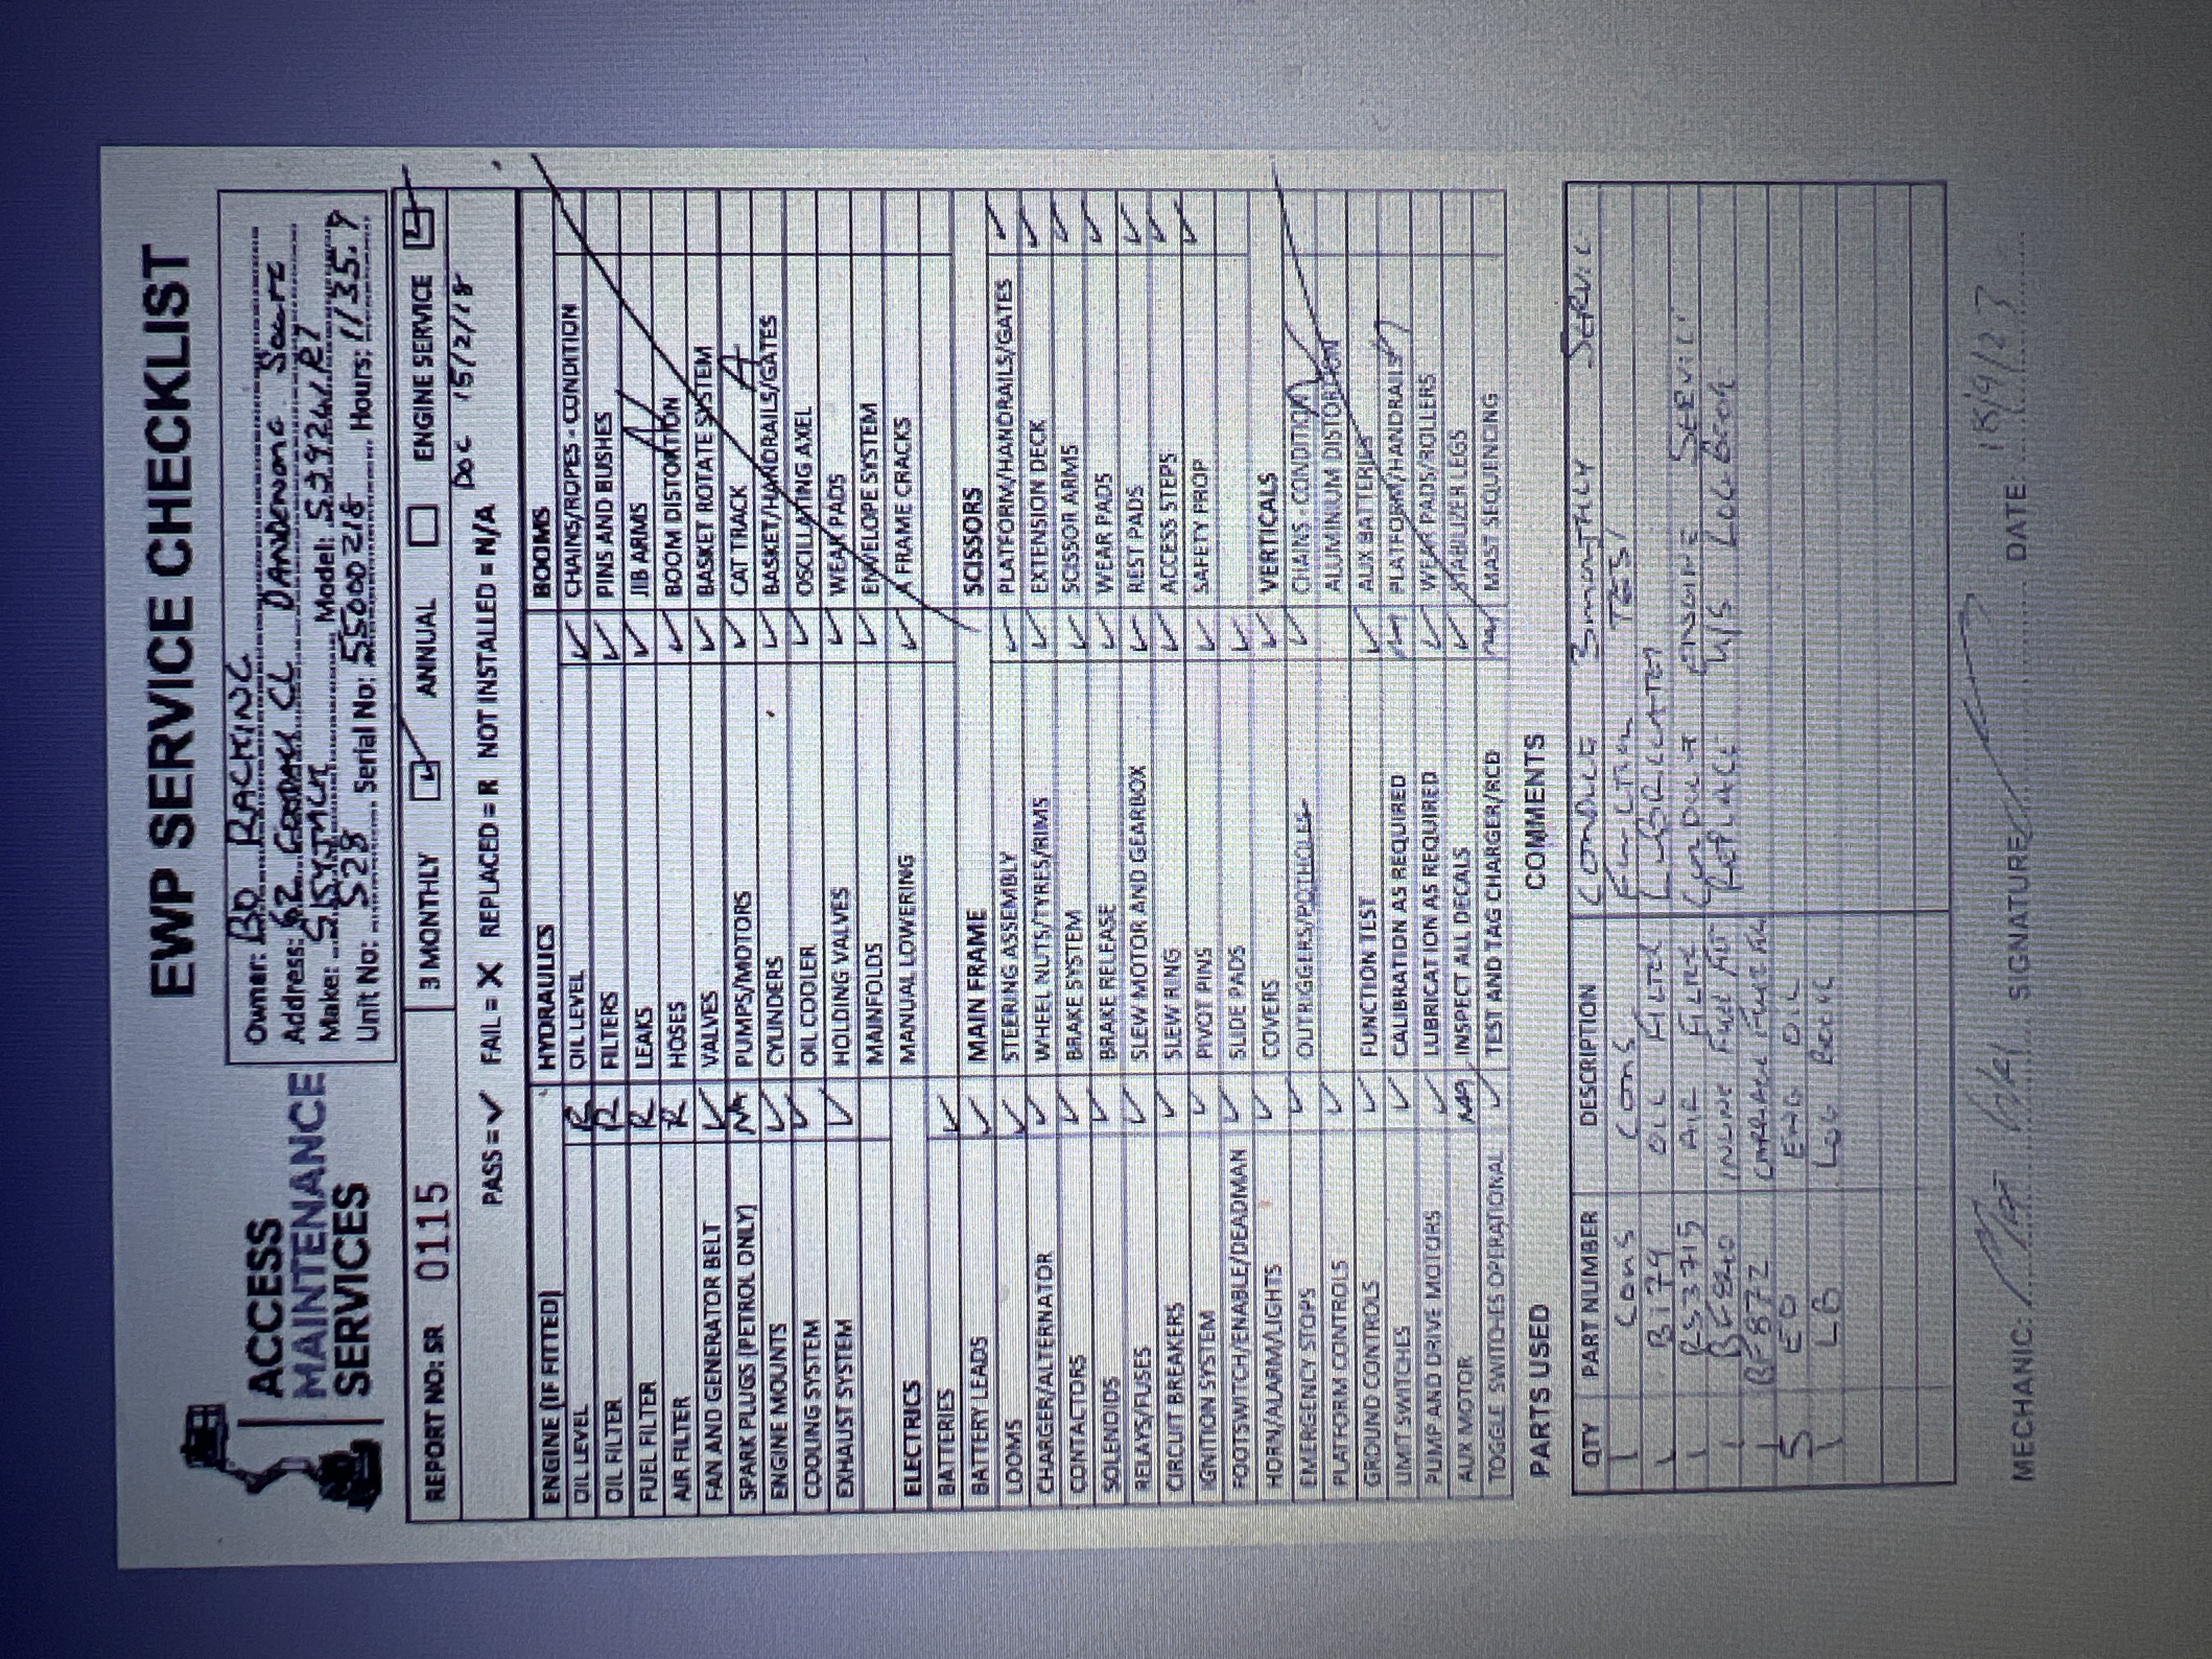 EWP SERVICE CHECKLIST
ACCESS
MAINTENANCE
SERVICES
Owner: BD RACKING
Address: 62 CL DANDENONG South
Make: Model: SJ9241RT
Unit No: S28 Serial No: 55000218 Hours: 1135.9
REPORT NO: SR 0115
3 MONTHLY ✓ ANNUAL ENGINE SERVICE ✓
PASS = ✓ FAIL = X REPLACED = R NOT INSTALLED = N/A DOC 15/2/18
ENGINE (IF FITTED)
OIL LEVEL R
OIL FILTER R
FUEL FILTER R
AIR FILTER R
FAN AND GENERATOR BELT ✓
SPARK PLUGS (PETROL ONLY) NA
ENGINE MOUNTS ✓
COOLING SYSTEM ✓
EXHAUST SYSTEM ✓
ELECTRICS
BATTERIES ✓
BATTERY LEADS ✓
LOOMS ✓
CHARGER/ALTERNATOR ✓
CONTACTORS ✓
SOLENOIDS ✓
RELAYS/FUSES ✓
CIRCUIT BREAKERS ✓
IGNITION SYSTEM ✓
FOOTSWITCH/ENABLE/DEADMAN ✓
HORN/ALARM/LIGHTS ✓
EMERGENCY STOPS ✓
PLATFORM CONTROLS ✓
GROUND CONTROLS ✓
LIMIT SWITCHES ✓
PUMP AND DRIVE MOTORS ✓
AUX MOTOR NA
TOGGLE SWITCHES OPERATIONAL ✓
HYDRAULICS
OIL LEVEL ✓
FILTERS ✓
LEAKS ✓
HOSES ✓
VALVES ✓
PUMPS/MOTORS ✓
CYLINDERS ✓
OIL COOLER ✓
HOLDING VALVES ✓
MAINFOLDS ✓
MANUAL LOWERING ✓
MAIN FRAME
STEERING ASSEMBLY ✓
WHEEL NUTS/TYRES/RIMS ✓
BRAKE SYSTEM ✓
BRAKE RELEASE ✓
SLEW MOTOR AND GEARBOX ✓
SLEW RING ✓
PIVOT PINS ✓
SLIDE PADS ✓
COVERS ✓
OUTRIGGERS/POTHOLES ✓
FUNCTION TEST ✓
CALIBRATION AS REQUIRED NA
LUBRICATION AS REQUIRED ✓
INSPECT ALL DECALS ✓
TEST AND TAG CHARGER/RCD NA
BOOMS
CHAINS/ROPES - CONDITION
PINS AND BUSHES
JIB ARMS
BOOM DISTORTION
BASKET ROTATE SYSTEM
CAT TRACK
BASKET/HANDRAILS/GATES
OSCILLATING AXEL
WEAR PADS
ENVELOPE SYSTEM
A FRAME CRACKS
N A
SCISSORS
PLATFORM/HANDRAILS/GATES ✓
EXTENSION DECK ✓
SCISSOR ARMS ✓
WEAR PADS ✓
REST PADS ✓
ACCESS STEPS ✓
SAFETY PROP ✓
VERTICALS
CHAINS - CONDITION
ALUMINUM DISTORTION
AUX BATTERIES
PLATFORM/HANDRAILS
WEAR PADS/ROLLERS
STABILIZER LEGS
MAST SEQUENCING
PARTS USED
QTY PART NUMBER DESCRIPTION
1 Cons Cons
1 B179 OIL FILTER
1 RS3715 AIR FILTRE
1 BF840 INLINE Fuel
1 BF872
5 EO ENG OIL
1 LB LOG BOOK
COMMENTS
CONDUCT 3 MONTHLY SERVIC
FUNCTION TEST
LUBRICATED
CONDUCT ENGINE SERVIC
REPLACE U/S LOG BOOK
MECHANIC: SIGNATURE DATE: 18/9/23